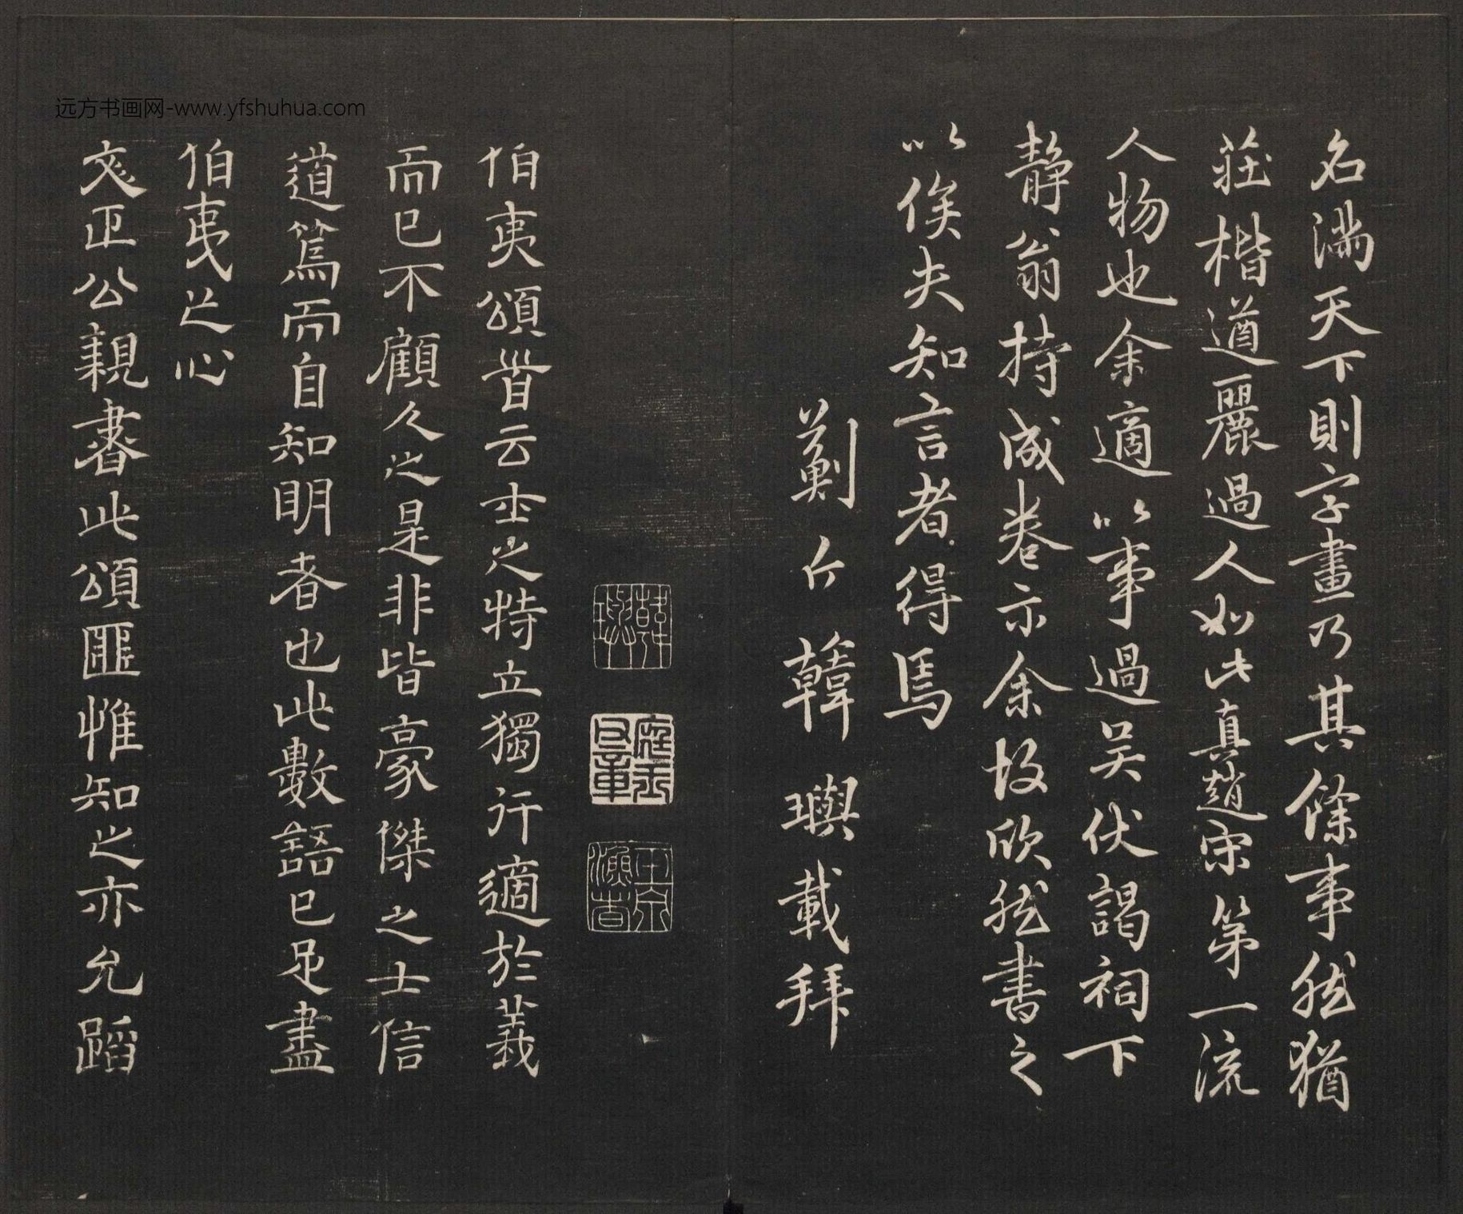 远方书画网-www.yfshuhua.com
名滿天下則字畫乃其餘事然猶
莊楷遒麗過人如此真趙宋第一流
人物也余適以事過吴伏謁祠下
靜翁持成卷示余余故欣然書之
以俟夫知言者得焉
薊丘韓璵載拜
韓璵
廷玉之章
伯夷頌首云士之特立獨行適於義
而已不顧人之是非皆豪傑之士信
道篤而自知明者也此數語已足盡
伯夷之心
文正公親書此頌匪惟知之亦允蹈